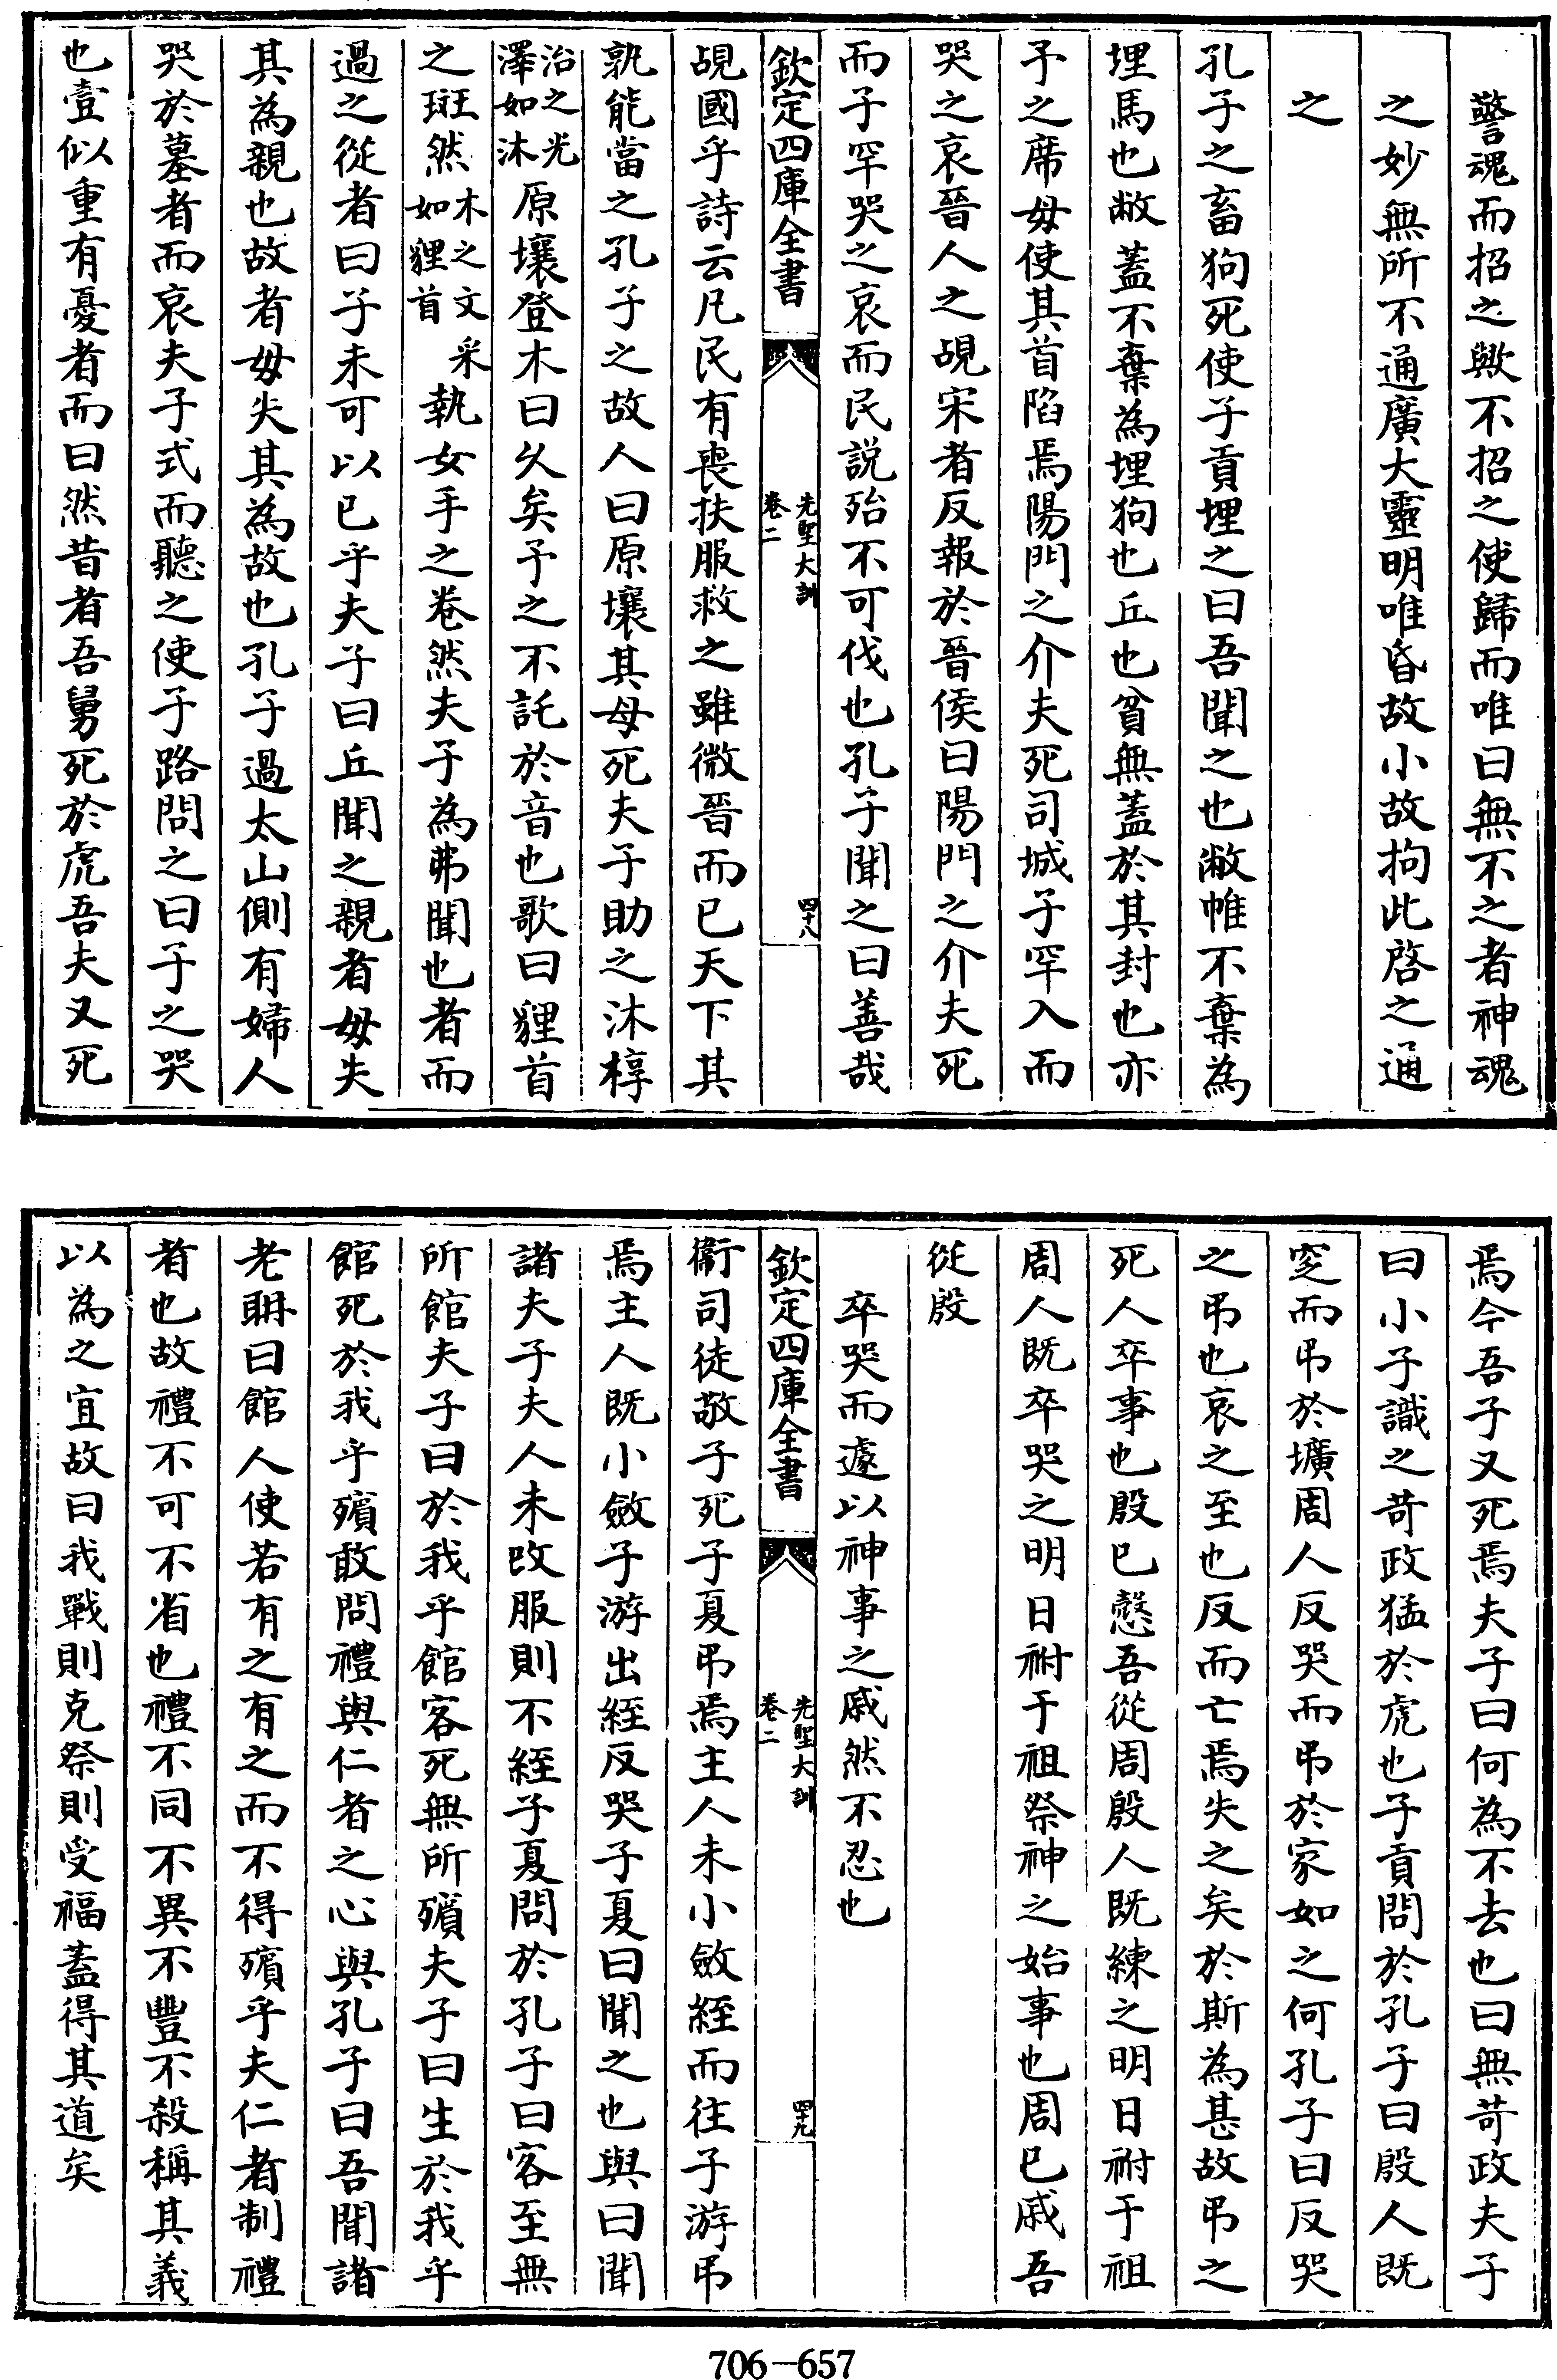 警魂而招之歟不招之使歸而唯曰無不之者神魂
之妙無所不通廣大靈明唯昏故小故拘此啓之通
之
孔子之畜狗死使子貢埋之曰吾聞之也敝帷不棄為
埋馬也敝蓋不棄為埋狗也丘也貧無蓋於其封也亦
予之席毋使其首陷焉陽門之介夫死司城子罕入而
哭之哀晉人之覘宋者反報於晉侯曰陽門之介夫死
而子罕哭之哀而民說殆不可伐也孔子聞之曰善哉
欽定四庫全書
先聖大訓
卷二
四十八
覘國乎詩云凡民有喪扶服救之雖微晉而已天下其
孰能當之孔子之故人曰原壤其母死夫子助之沐椁
治之光
澤如沐
原壤登木曰久矣予之不託於音也歌曰貍首
之斑然
木之文采
如貍首
執女手之卷然夫子為弗聞也者而
過之從者曰子未可以已乎夫子曰丘聞之親者毋失
其為親也故者毋失其為故也孔子過太山側有婦人
哭於墓者而哀夫子式而聽之使子路問之曰子之哭
也壹似重有憂者而曰然昔者吾舅死於虎吾夫又死
焉今吾子又死焉夫子曰何為不去也曰無苛政夫子
曰小子識之苛政猛於虎也子貢問於孔子曰殷人既
窆而弔於壙周人反哭而弔於家如之何孔子曰反哭
之弔也哀之至也反而亡焉失之矣於斯為甚故弔之
死人卒事也殷已慤吾從周殷人既練之明日祔于祖
周人既卒哭之明日祔于祖祭神之始事也周已戚吾
從殷
卒哭而遽以神事之戚然不忍也
欽定四庫全書
先聖大訓
卷二
四十九
衞司徒敬子死子夏弔焉主人未小斂絰而往子游弔
焉主人既小斂子游出絰反哭子夏曰聞之也與曰聞
諸夫子夫人未改服則不絰子夏問於孔子曰客至無
所館夫子曰於我乎館客死無所殯夫子曰生於我乎
館死於我乎殯敢問禮與仁者之心與孔子曰吾聞諸
老耼曰館人使若有之有之而不得殯乎夫仁者制禮
者也故禮不可不省也禮不同不異不豐不殺稱其義
以為之宜故曰我戰則克祭則受福蓋得其道矣
706-657